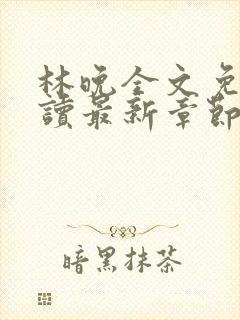 林晚全文免
讀最新章節
暗黑抹茶